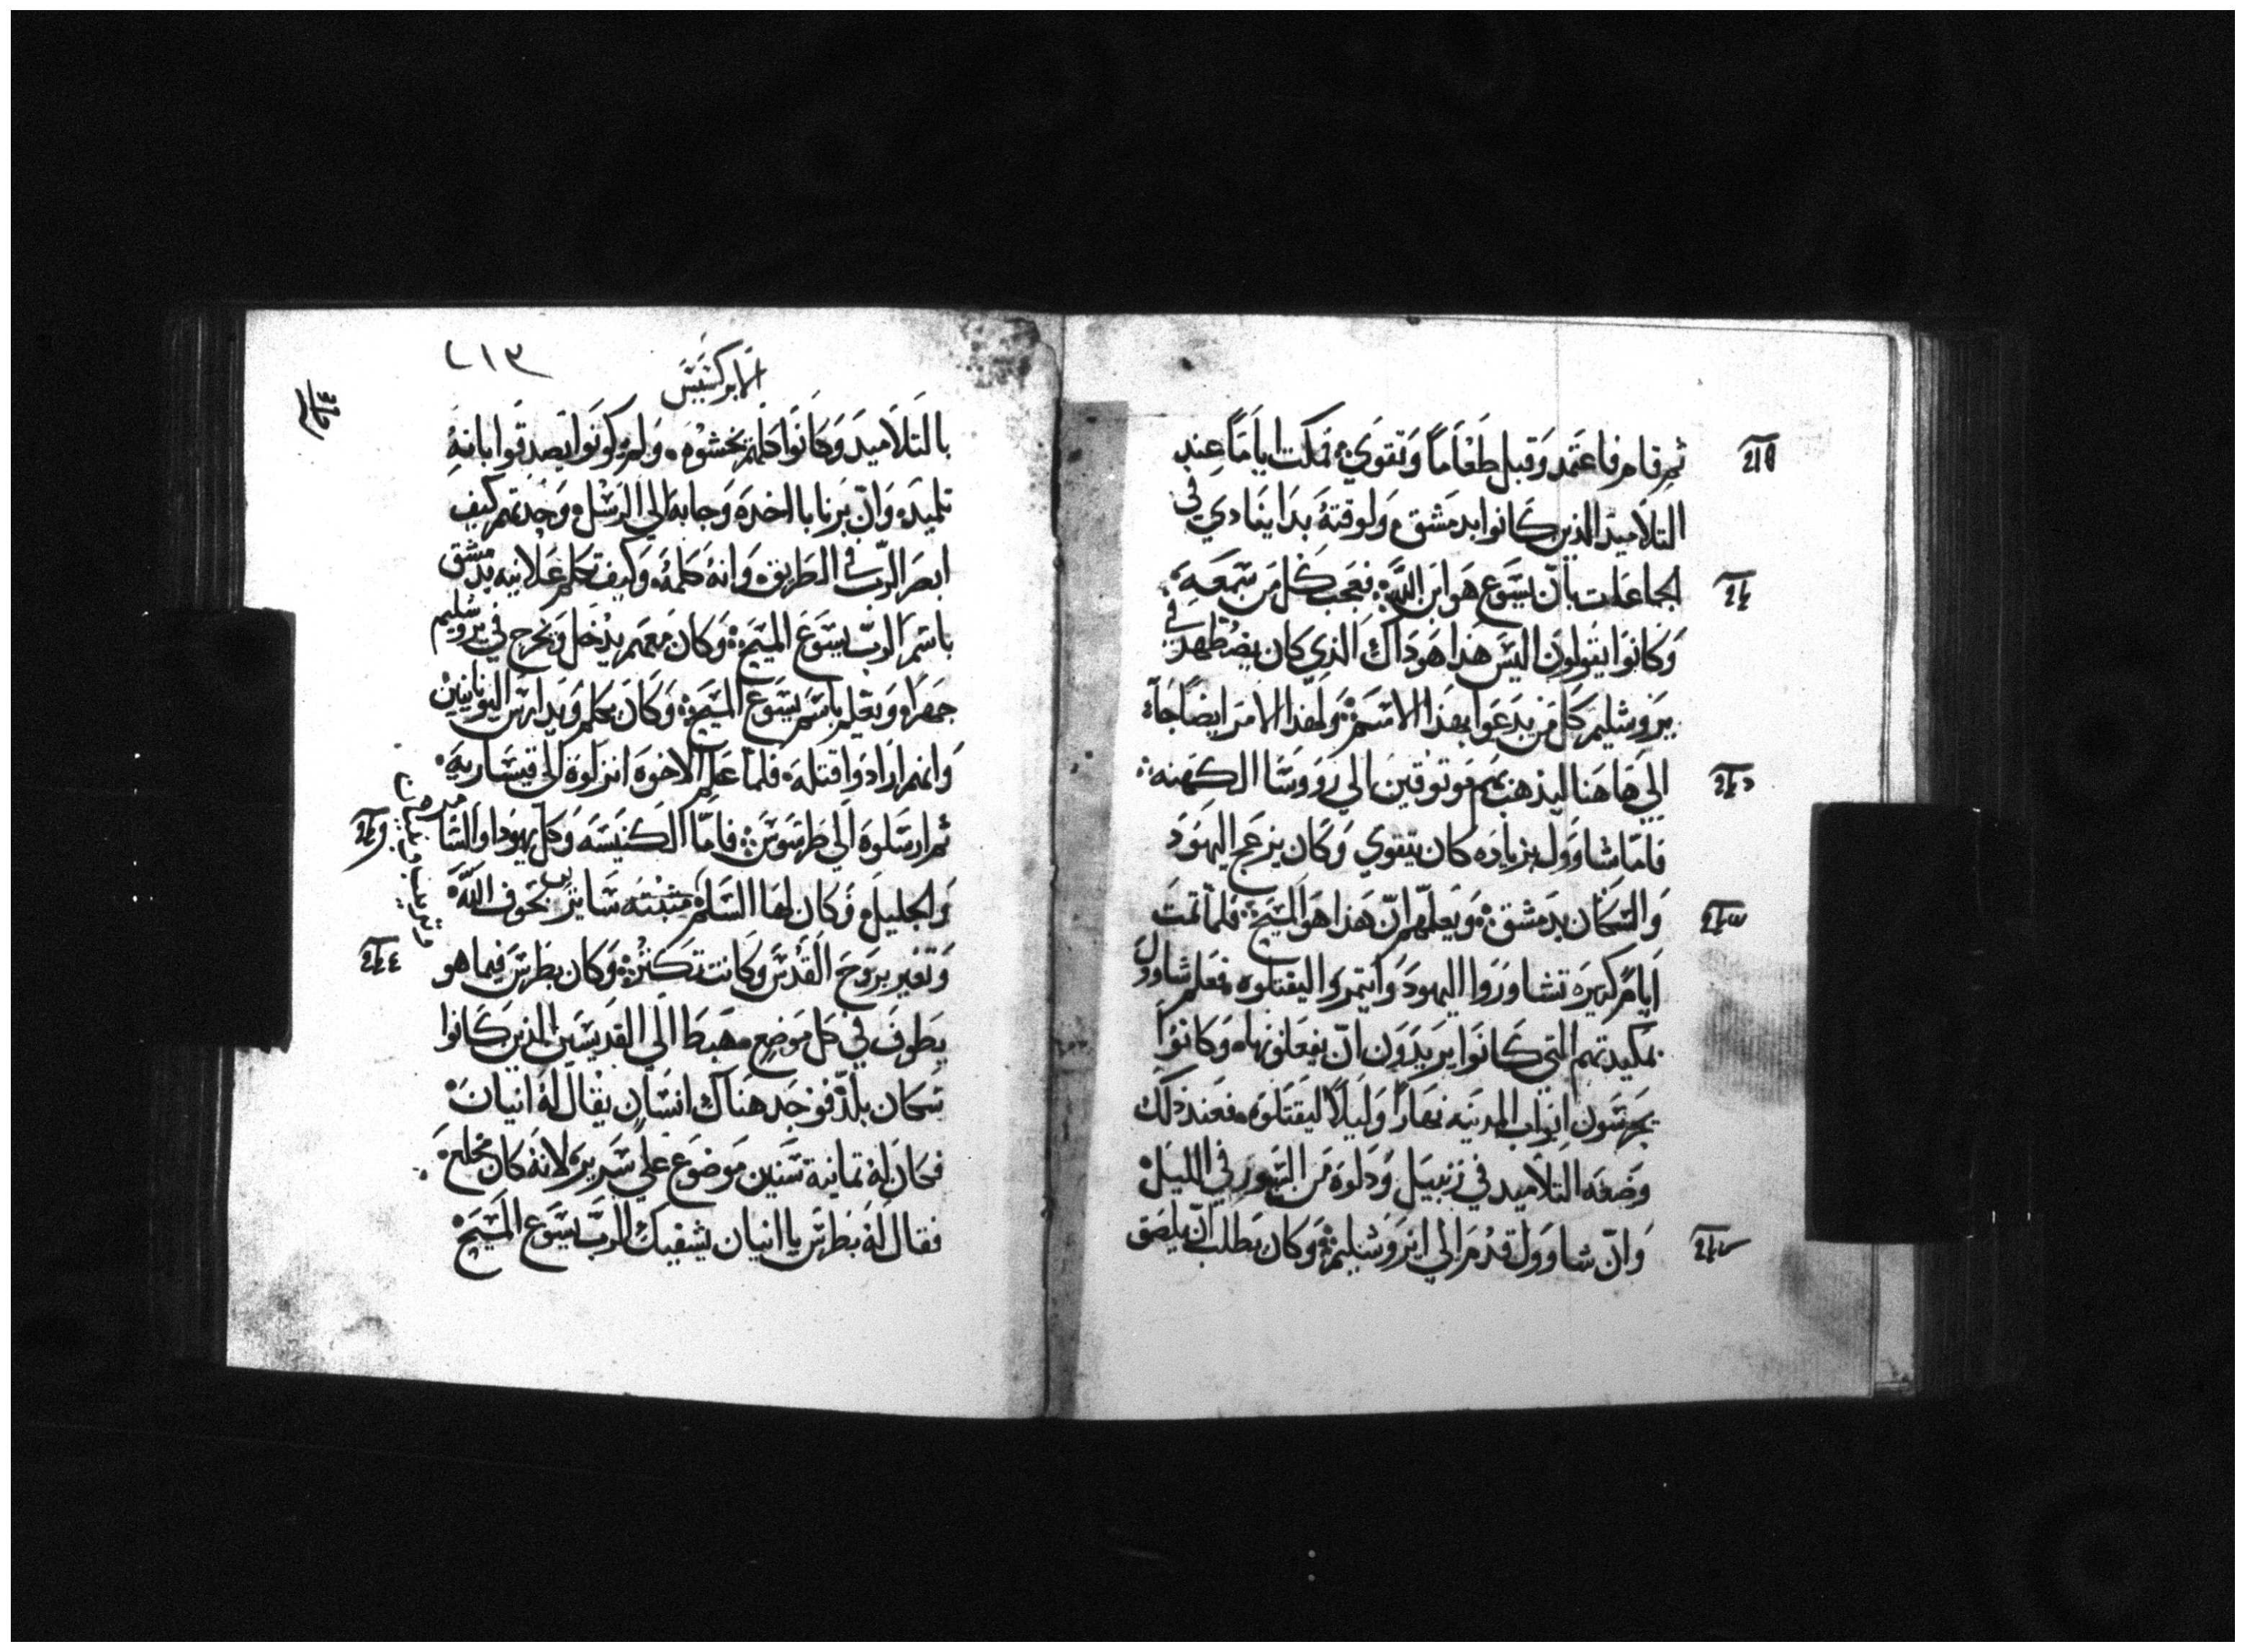 ثم قام فاعتمد وقبل طعاماً وتقوي فمكت اياماً عند
التلاميد الذين كانوا بدمشق ولوقته بدا ينادي في
الجماعات بان يسوع هو ابن الله فعجب كل من سمعه
وكانوا يقولون اليس هذا هوداك الذي كان يضطهد في
يروشليم كل من يدعوا بهذا الاسم ولهذا الامر ايضا جاء
الي هاهنا ليذهب بهم موتوقين الي رووسا الكهنه
فاما شاوول بزياده كان يتقوي وكان يزعج اليهود
والسكان بدمشق ويعلمهم ان هذا هو المسيح فلما تمت
ايام كتيره تشاوروا اليهود وايتمروا ليقتلوه فعلم شاوول
بمكيدتهم التي كانوا يريدون ان يفعلونها وكانوا
يحرسون ابواب المدينه نهاراً وليلاً ليقتلوه فعند دلك
وضعه التلاميد في زنبيل ودلوه من السور في الليل
وان شاوول قدم الي ايروشليم وكان يطلب ان يلصق
٢١٣
الابركسيس
بالتلاميد وكانوا كلهم يخشوه ولم يكونوا يصدقوا بانه
تلميد وان برنابا اخده وجابه الي الرسل وحدتهم كيف
ابصر الرب في الطريق وانه كلمه وكيف تكلم علانيه بدمشق
باسم الرب يسوع المسيح وكان معهم يدخل ويخرج في يروشليم
جهراً ويعلم باسم يسوع المسيح وكان يكلم ويدارس اليونانيين
وانهم ارادوا قتله فلما علم الاخوه انزلوه الي قيساريه
ثم ارسلوه الي طرسوس فاما الكنيسه وكل يهودا والسامره
والجليل فكان لها السلم متبته سايره بخوف الله
وتغير بروح القدس وكانت تكتر وكان بطرس فيما هو
يطوف في كل موضع مهبط الي القديسين الذين كانوا
سكان بلد فوجد هناك انسان يقال له انيان
فكان له تمانية سنين موضوع علي سرير لانه كان مخلع
فقال له بطرس يا انيان يشفيك الرب يسوع المسيح